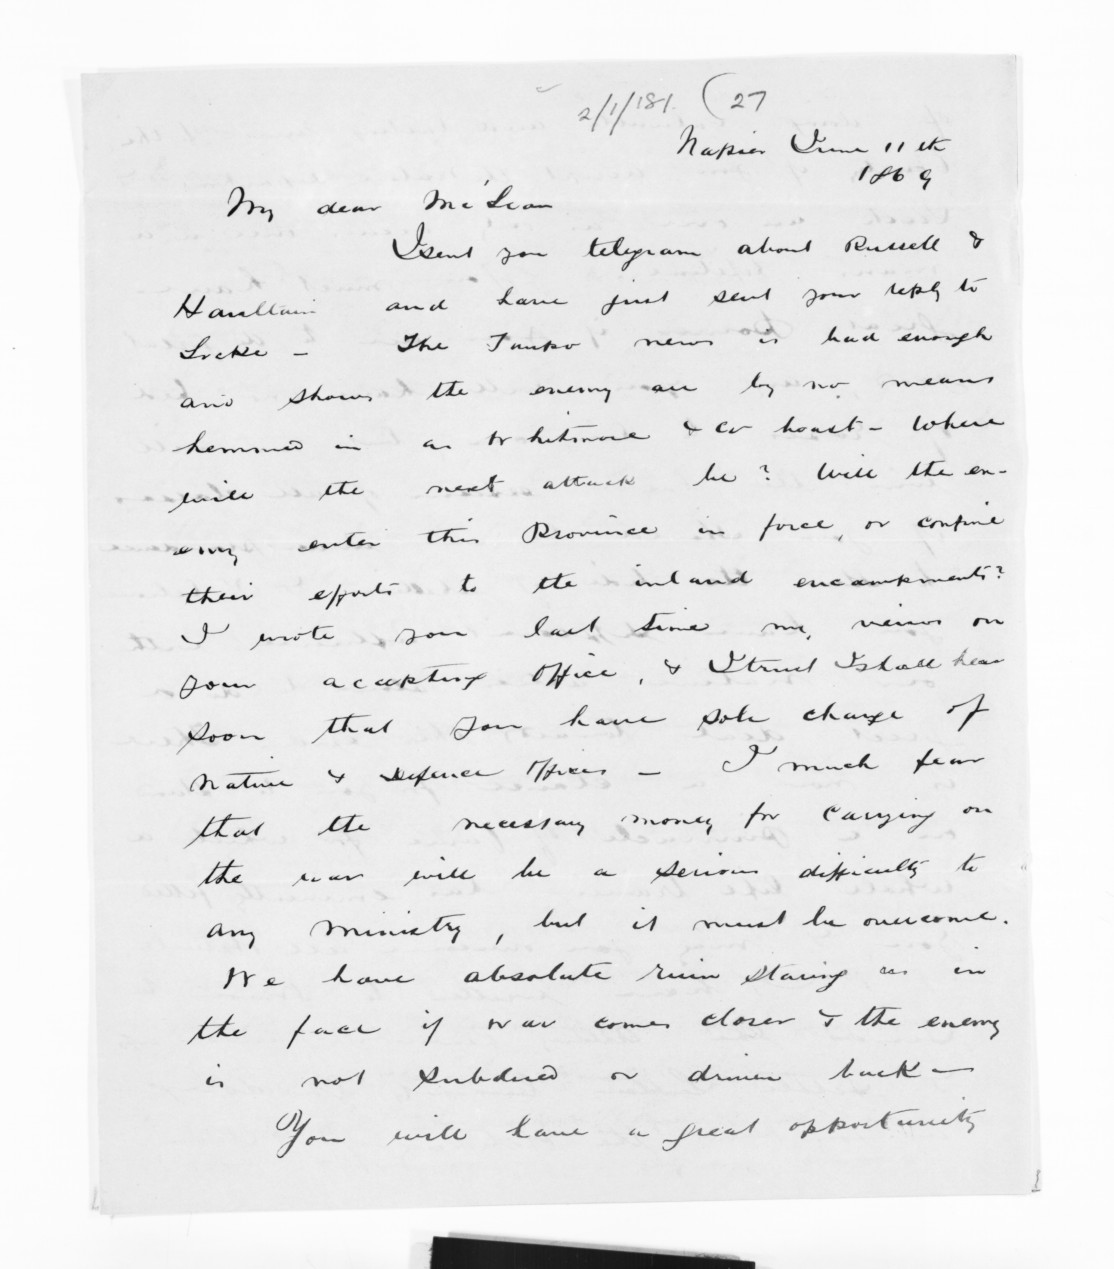 2/1/181. (27
Napier June 11th
1869
My dear McLean
I sent you telegram about Russell &
Haultain and have just sent your reply to
Locke - The Taupo news is bad enough
and shows the enemy are by no means
hemmed in as Whitmore & co boast - Where
will the next attack be? Will the en-
emy enter this Province in force, or confine
their efforts to the inland encampments?
I wrote you last time my views on
your accepting office, & I trust I shall hear
soon that you have sole charge of
Native & Defence Offices - I much fear
that the necessary money for carrying on
the war will be a serious difficulty to
any Ministry, but it must be overcome.
We have absolute ruin staring us in
the face if war comes closer & the enemy
is not subdued or driven back -
You will have a great opportunity